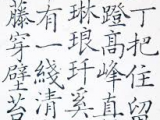 丁把住留
蹬高峰直
琳琅玕奚
有一綫清
藤穿壁苔